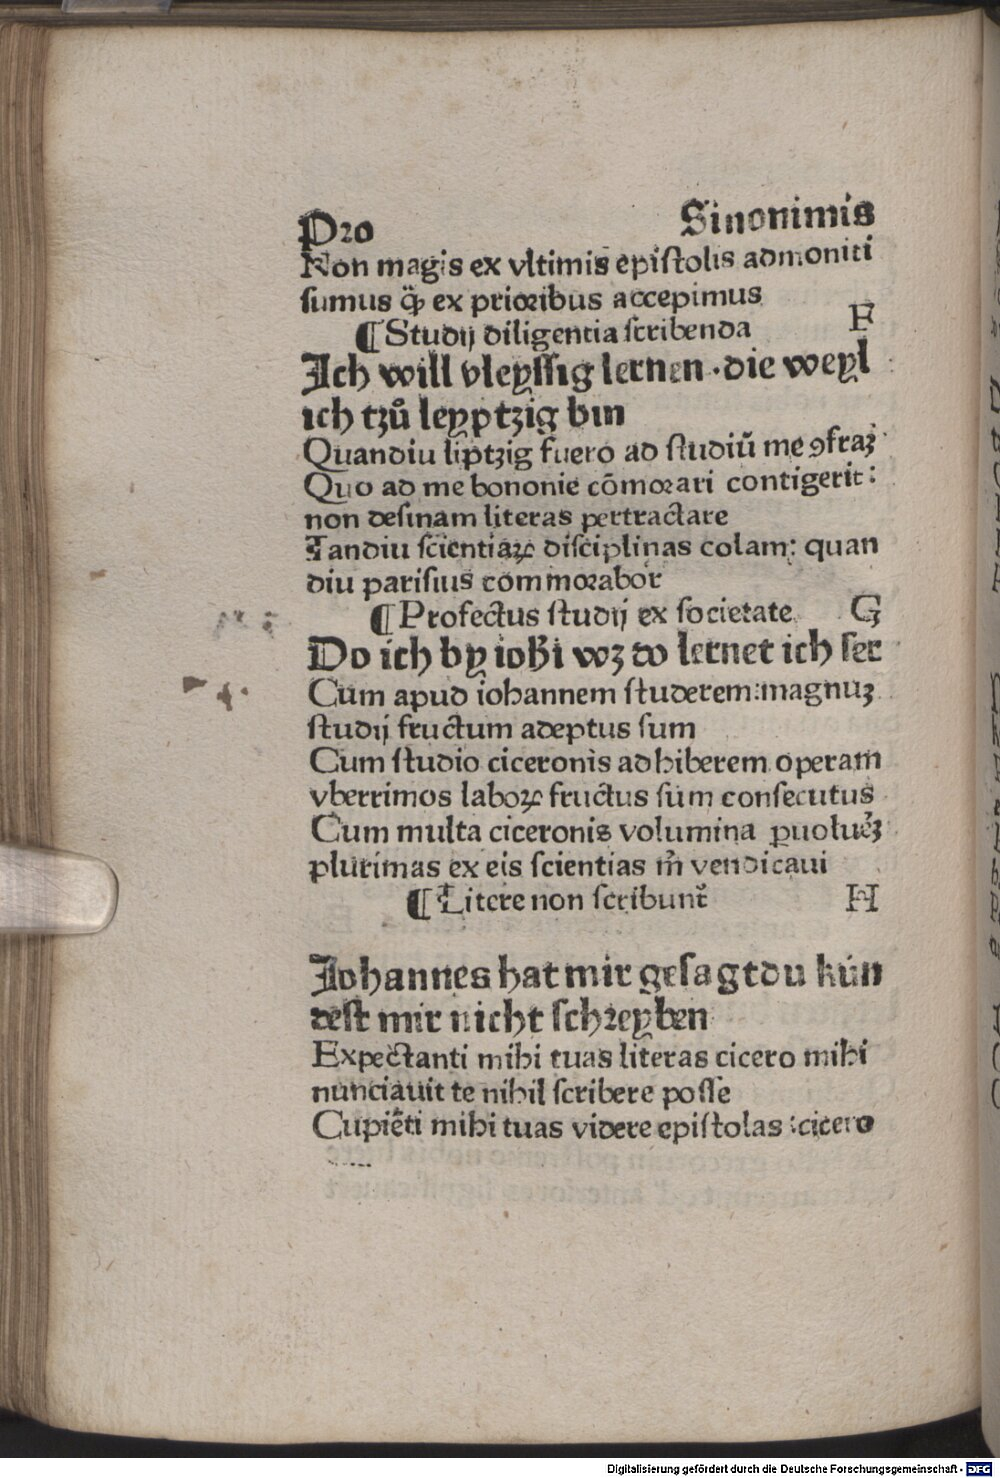 Pro Sinonimis
Non magis ex vltimis epistolis admoniti
sumus q̈ꝫ ex prioribus accepimus
¶ Studij diligentia scribenda F
Ich will vleyssig lernen. die weyl
ich tzů leyptzig bin
Quandiu liptzig fuero ad studiū me ꝯfraꝫ
Quo ad me bononie cōmorari contigerit:
non desinam literas pertractare
Tandiu scientiaꝝ disciplinas colam: quan
diu parisius commorabor
¶ Profectus studij ex societate G
Do ich by iohī wꝫ do lernet ich ser
Cum apud iohannem studerem: magnuꝫ
studij fructum adeptus sum
Cum studio ciceronis adhiberem operam
vberrimos laboꝝ fructus sum consecutus
Cum multa ciceronis volumina ꝑuolueꝫ
plurimas ex eis scientias m̄ vendicaui
¶ Litere non scribunt᷑ H
Johannes hat mir gesagt du kün
dest mir nicht schreyben
Expectanti mihi tuas literas cicero mihi
nunciauit te nihil scribere posse
Cupiēti mihi tuas videre epistolas: cicero
Digitalisierung gefördert durch die Deutsche Forschungsgemeinschaft - DFG